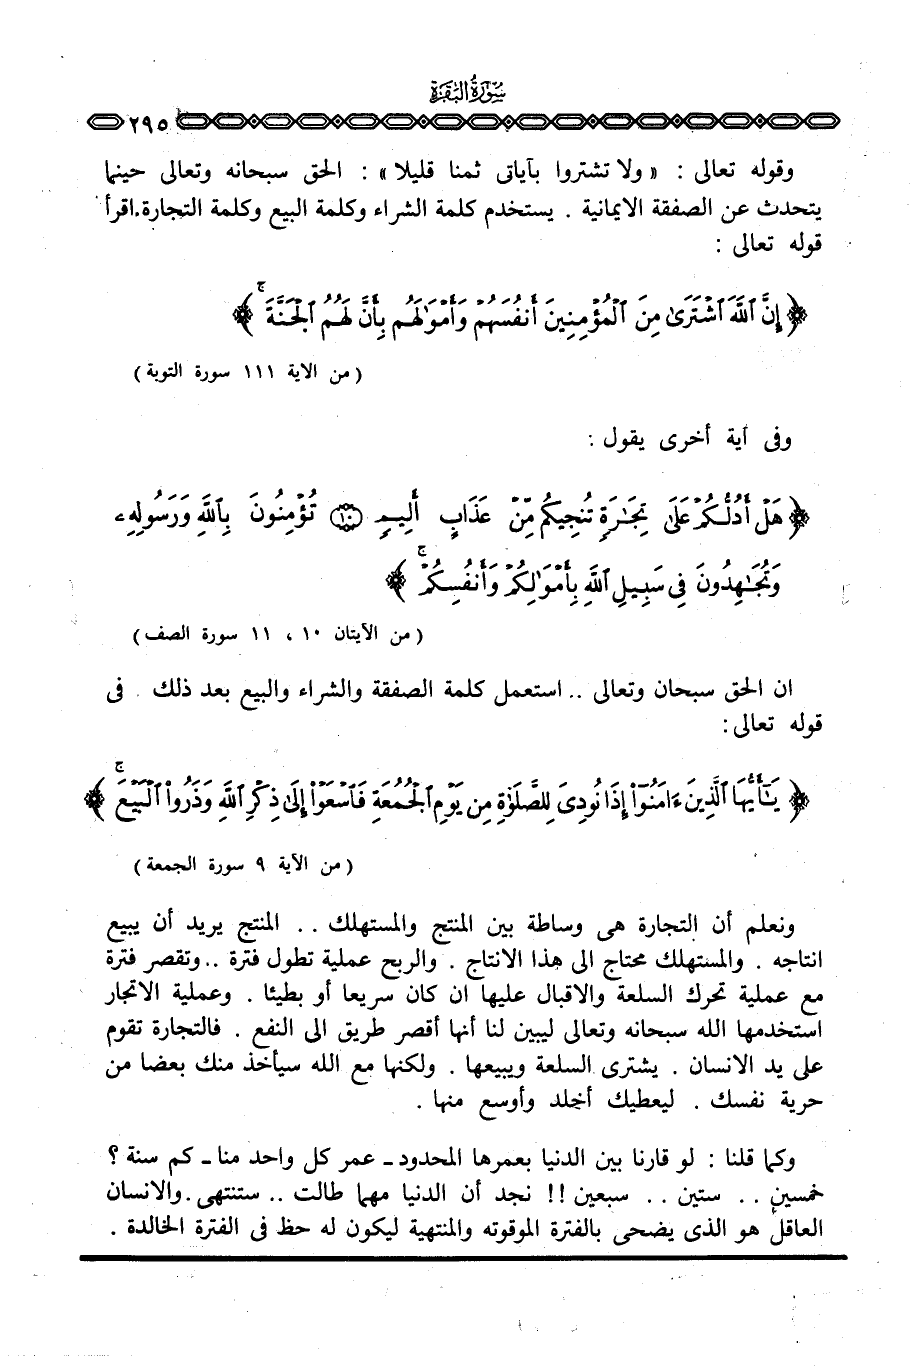 سُورَةُ البَقَرَة
٢٩٥
وقوله تعالى : « ولا تشتروا بآياتى ثمنا قليلا » : الحق سبحانه وتعالى حينما
يتحدث عن الصفقة الايمانية . يستخدم كلمة الشراء وكلمة البيع وكلمة التجارة.اقرأ
قوله تعالى :
﴿ إِنَّ ٱللَّهَ ٱشْتَرَىٰ مِنَ ٱلْمُؤْمِنِينَ أَنفُسَهُمْ وَأَمْوَٰلَهُم بِأَنَّ لَهُمُ ٱلْجَنَّةَ ۚ ﴾
( من الاية ١١١ سورة التوبة )
وفى آية أخرى يقول :
﴿ هَلْ أَدُلُّكُمْ عَلَىٰ تِجَٰرَةٍ تُنجِيكُم مِّنْ عَذَابٍ أَلِيمٍ ۝١٠ تُؤْمِنُونَ بِٱللَّهِ وَرَسُولِهِۦ
وَتُجَٰهِدُونَ فِى سَبِيلِ ٱللَّهِ بِأَمْوَٰلِكُمْ وَأَنفُسِكُمْ ۚ ﴾
( من الآيتان ١٠ ، ١١ سورة الصف )
ان الحق سبحان وتعالى .. استعمل كلمة الصفقة والشراء والبيع بعد ذلك . فى
قوله تعالى :
﴿ يَٰٓأَيُّهَا ٱلَّذِينَ ءَامَنُوٓا۟ إِذَا نُودِىَ لِلصَّلَوٰةِ مِن يَوْمِ ٱلْجُمُعَةِ فَٱسْعَوْا۟ إِلَىٰ ذِكْرِ ٱللَّهِ وَذَرُوا۟ ٱلْبَيْعَ ۚ ﴾
( من الآية ٩ سورة الجمعة )
ونعلم أن التجارة هى وساطة بين المنتج والمستهلك .. المنتج يريد أن يبيع
انتاجه . والمستهلك محتاج الى هذا الانتاج . والربح عملية تطول فترة .. وتقصر فترة
مع عملية تحرك السلعة والاقبال عليها ان كان سريعا أو بطيئا . وعملية الاتجار
استخدمها الله سبحانه وتعالى ليبين لنا أنها أقصر طريق الى النفع . فالتجارة تقوم
على يد الانسان . يشترى السلعة ويبيعها . ولكنها مع الله سيأخذ منك بعضا من
حرية نفسك . ليعطيك أخلد وأوسع منها .
وكما قلنا : لو قارنا بين الدنيا بعمرها المحدود ـ عمر كل واحد منا ـ كم سنة ؟
خمسين .. ستين .. سبعين !! نجد أن الدنيا مهما طالت .. ستنتهى . والانسان
العاقل هو الذى يضحى بالفترة الموقوته والمنتهية ليكون له حظ فى الفترة الخالدة .